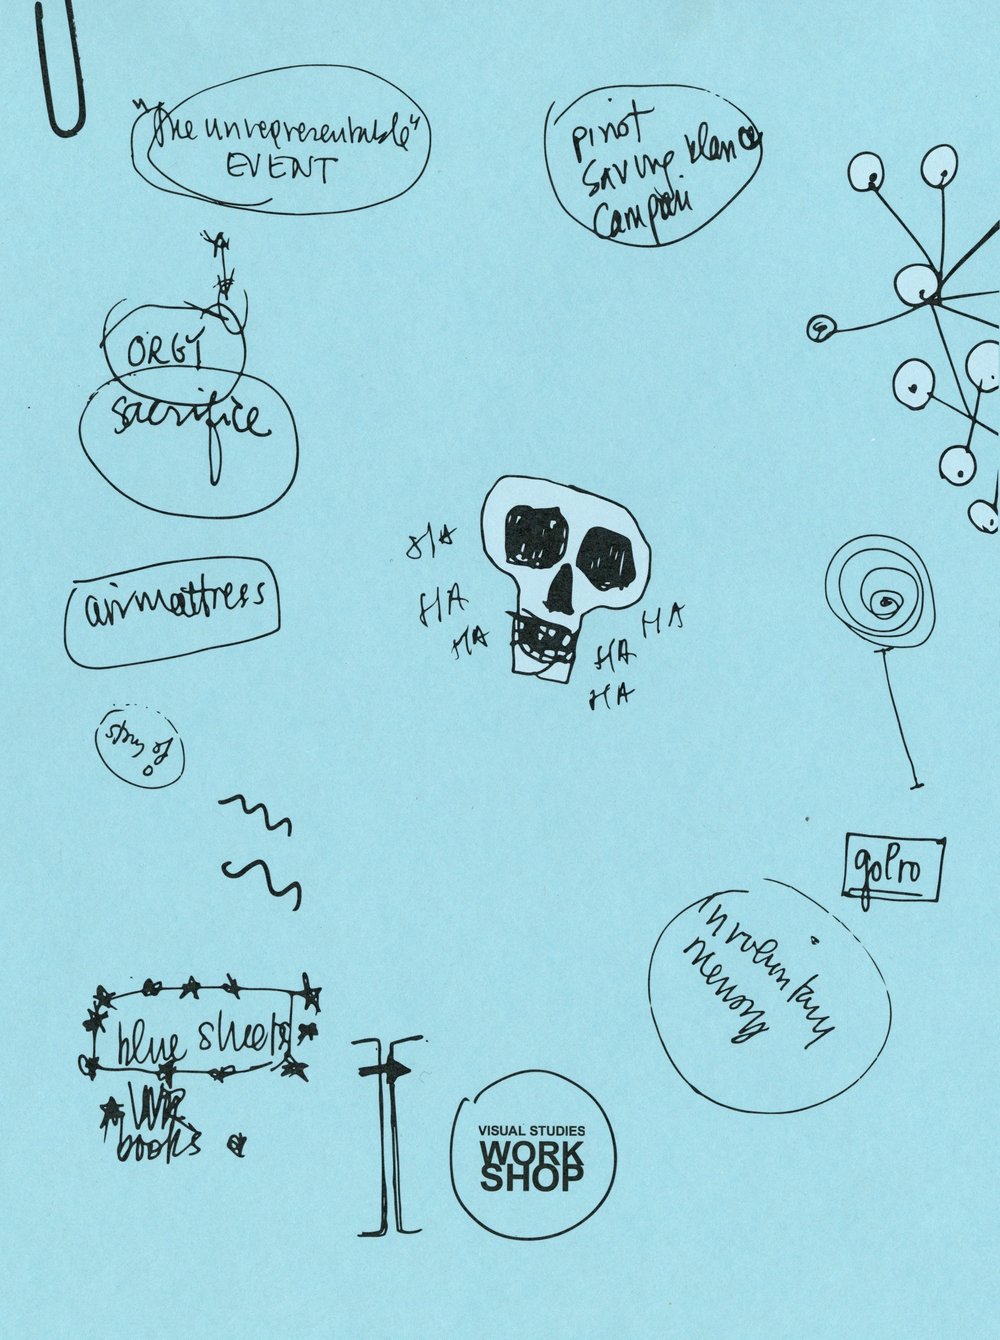 "the unrepresentable"
EVENT
pinot
Campari
ORGY
sacrifice
HA
HA
HA
HA
HA
HA
airmattress
story of
o
goPro
involuntary
memory
blue sheets
books
VISUAL STUDIES
WORK
SHOP